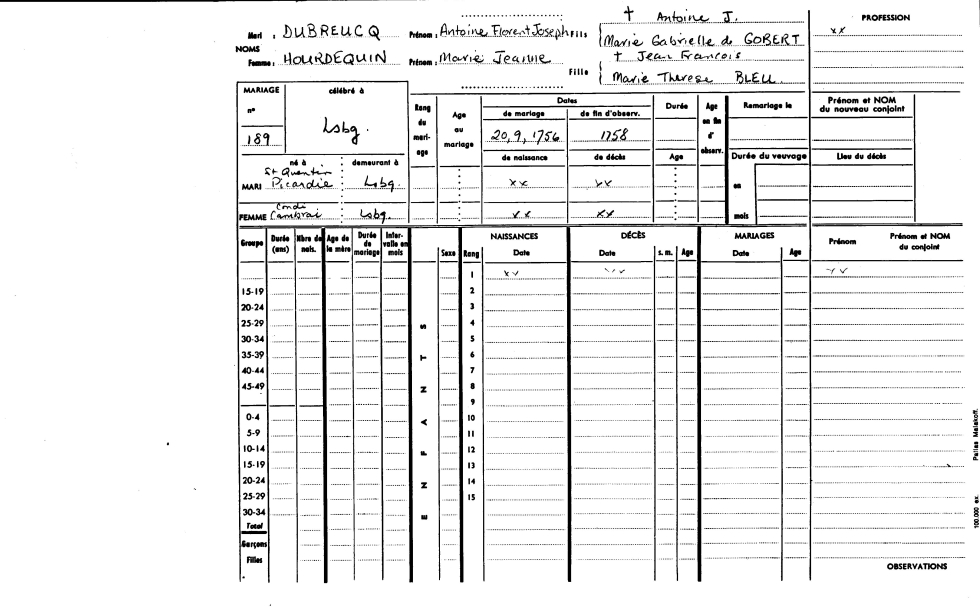 † Antoine J.
PROFESSION
Mari : DUBREUCQ Prénom : Antoine Florent Joseph Fils Marie Gabrielle de GOBERT
xx
NOMS
† Jean Francois
Femme : HOURDEQUIN Prénom : Marie Jeanne Fille Marie Therese BLEU
MARIAGE célébré à
n° 189 Lsbg.
Rang du mariage
Age au mariage
Dates
de mariage de fin d'observ.
20,9,1756 1758
Durée
Age en fin d'observ.
Remariage le
Prénom et NOM du nouveau conjoint
né à demeurant à
de naissance de décès Age
Durée du veuvage
Lieu du décès
MARI St Quentin Picardie Lsbg. xx xx
en
FEMME Condi Cambrai Lsbg. xx xx
mois
Groupe Durée (ans) Nbre de nais. Age de la mère Durée de mariage Intervalle en mois
ENFANTS
Sexe Rang
NAISSANCES Date
DÉCÈS Date s. m. Age
MARIAGES Date Age
Prénom Prénom et NOM du conjoint
1 xx xx xx
15-19 2
20-24 3
25-29 4
30-34 5
35-39 6
40-44 7
45-49 8
9
0-4 10
5-9 11
10-14 12
15-19 13
20-24 14
25-29 15
30-34
Total
Garçons
Filles
OBSERVATIONS
100.000 ex. Pallas Malakoff.